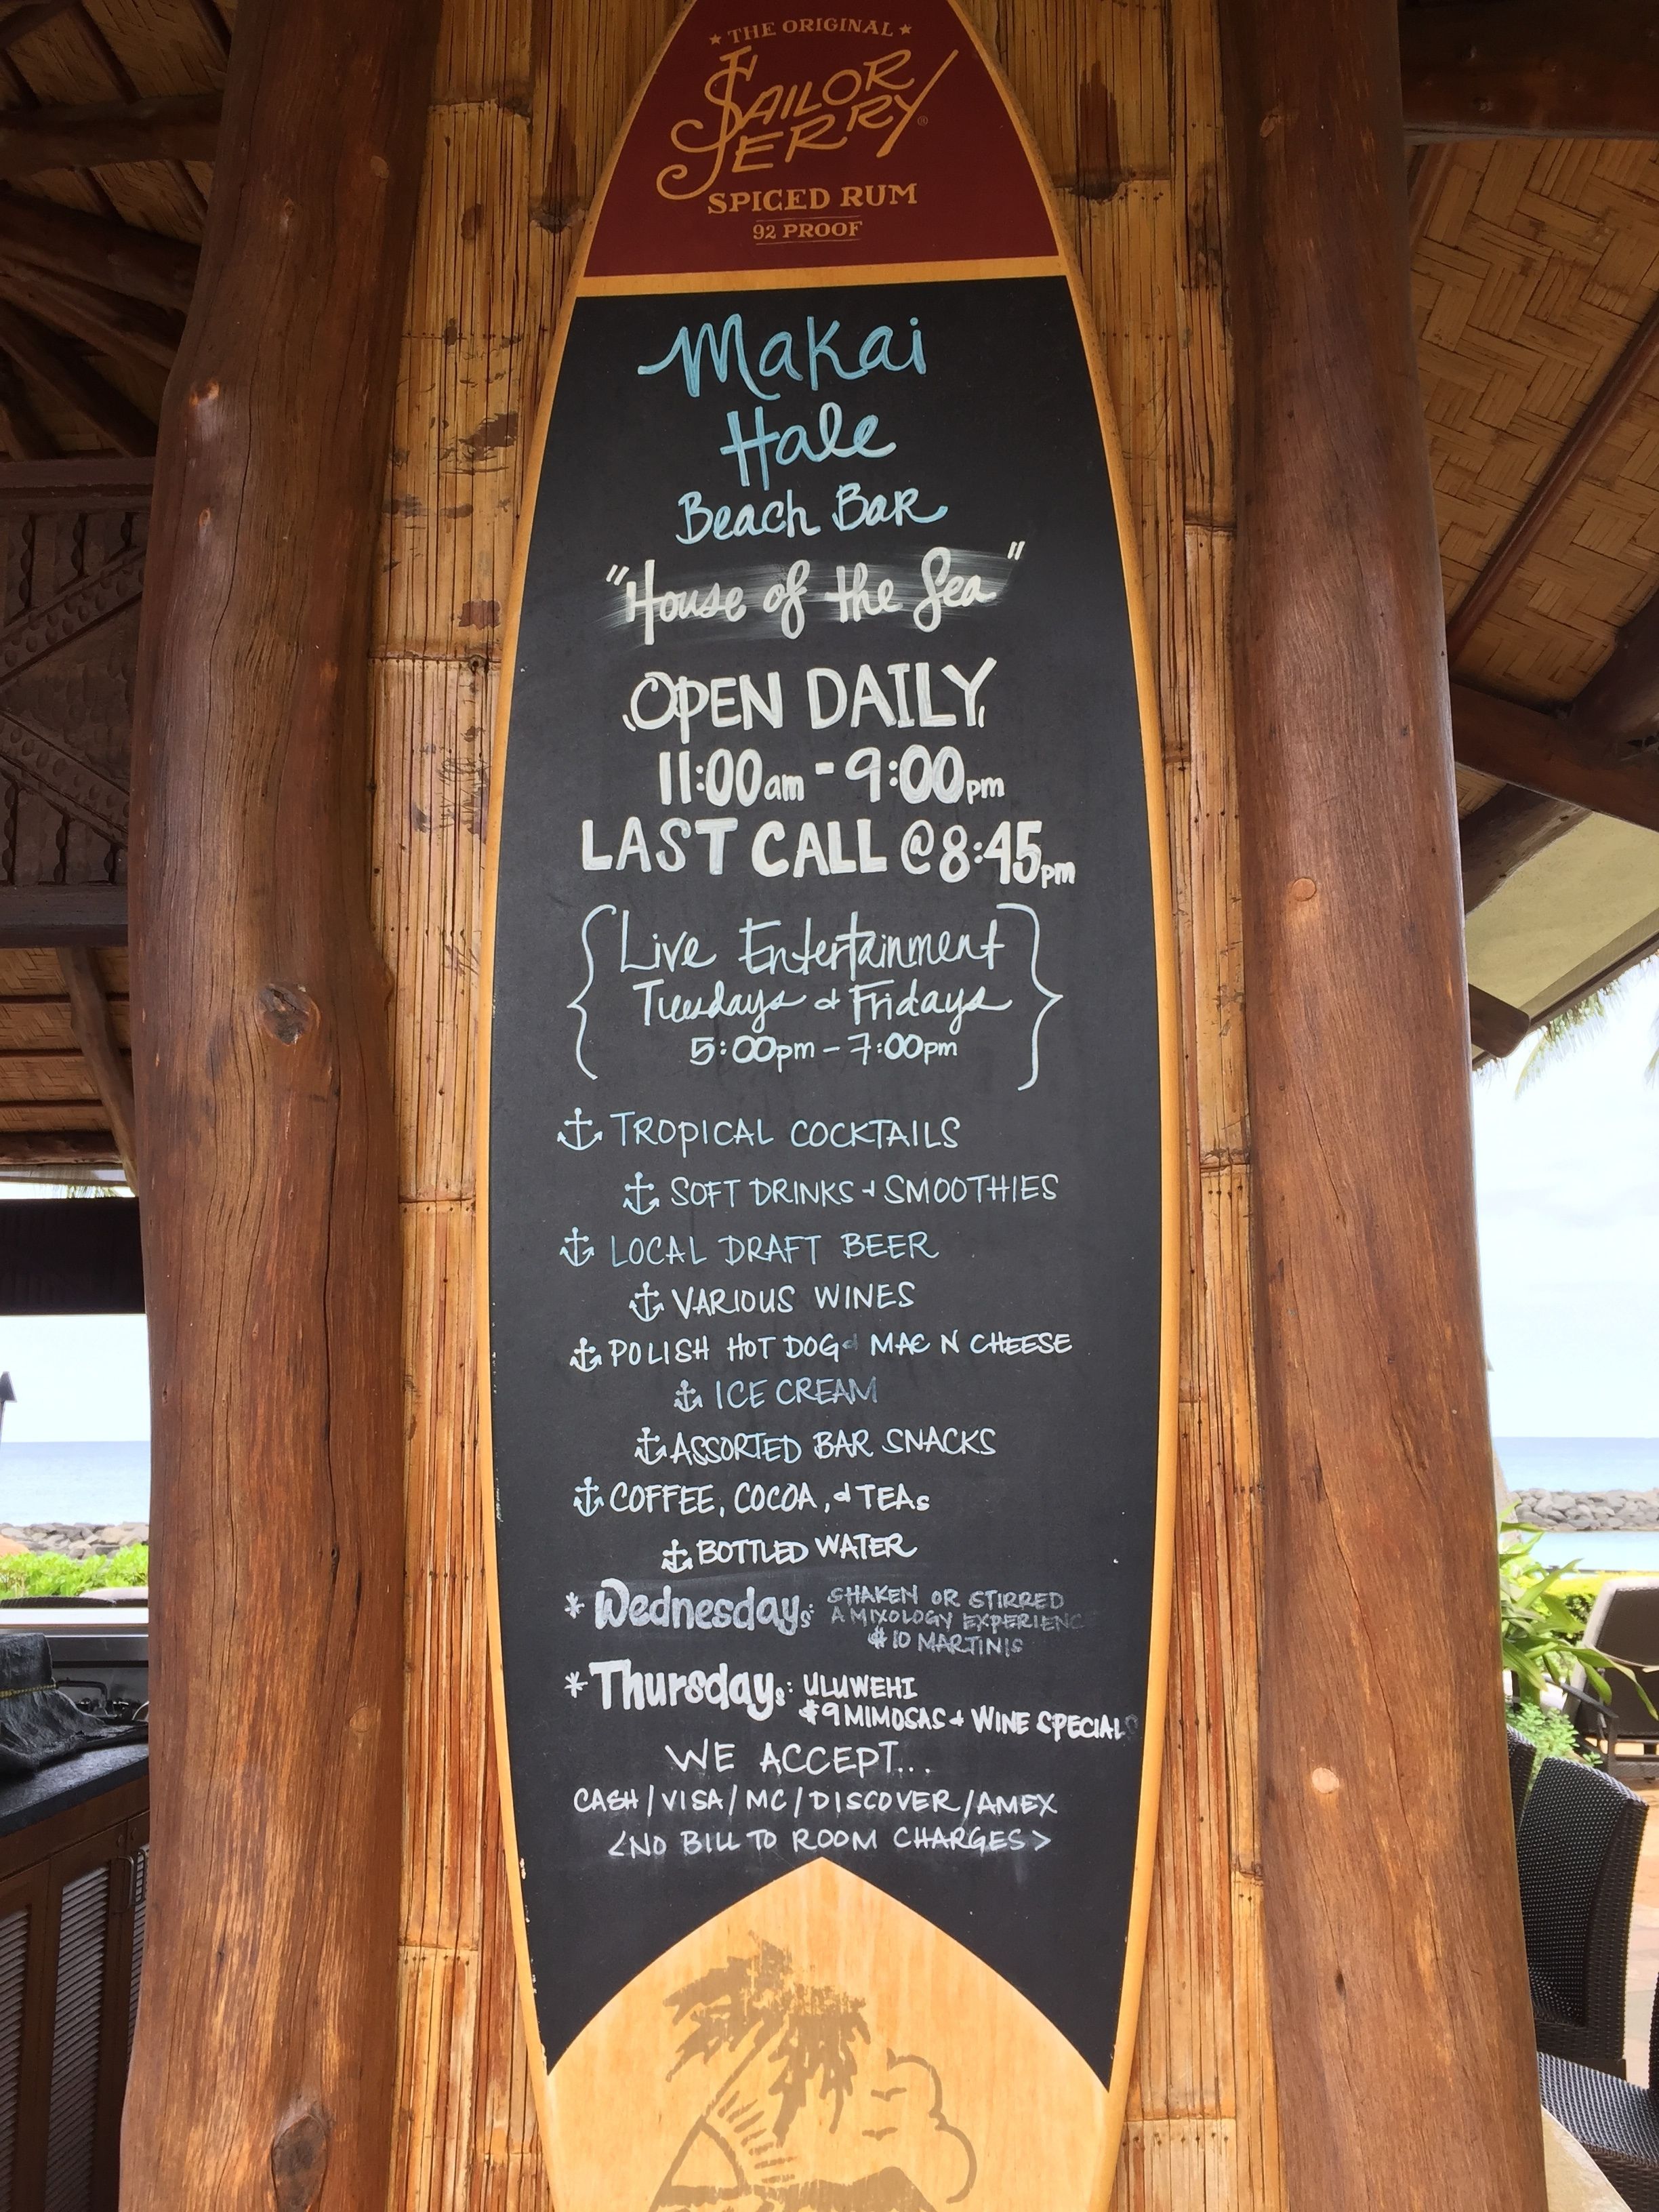 ★ THE ORIGINAL ★
SAILOR
JERRY®
SPICED RUM
92 PROOF
Makai
Hale
Beach Bar
"House of the Sea"
OPEN DAILY
11:00am - 9:00pm
LAST CALL @ 8:45pm
{Live Entertainment
Tuesdays & Fridays
5:00pm - 7:00pm}
TROPICAL COCKTAILS
SOFT DRINKS & SMOOTHIES
LOCAL DRAFT BEER
VARIOUS WINES
POLISH HOT DOG & MAC N CHEESE
ICE CREAM
ASSORTED BAR SNACKS
COFFEE, COCOA, & TEAs
BOTTLED WATER
* Wednesdays: SHAKEN OR STIRRED
A MIXOLOGY EXPERIENC
$10 MARTINIS
* Thursdays: ULUWEHI
$9 MIMOSAS & WINE SPECIALS
WE ACCEPT...
CASH / VISA / MC / DISCOVER / AMEX
<NO BILL TO ROOM CHARGES>